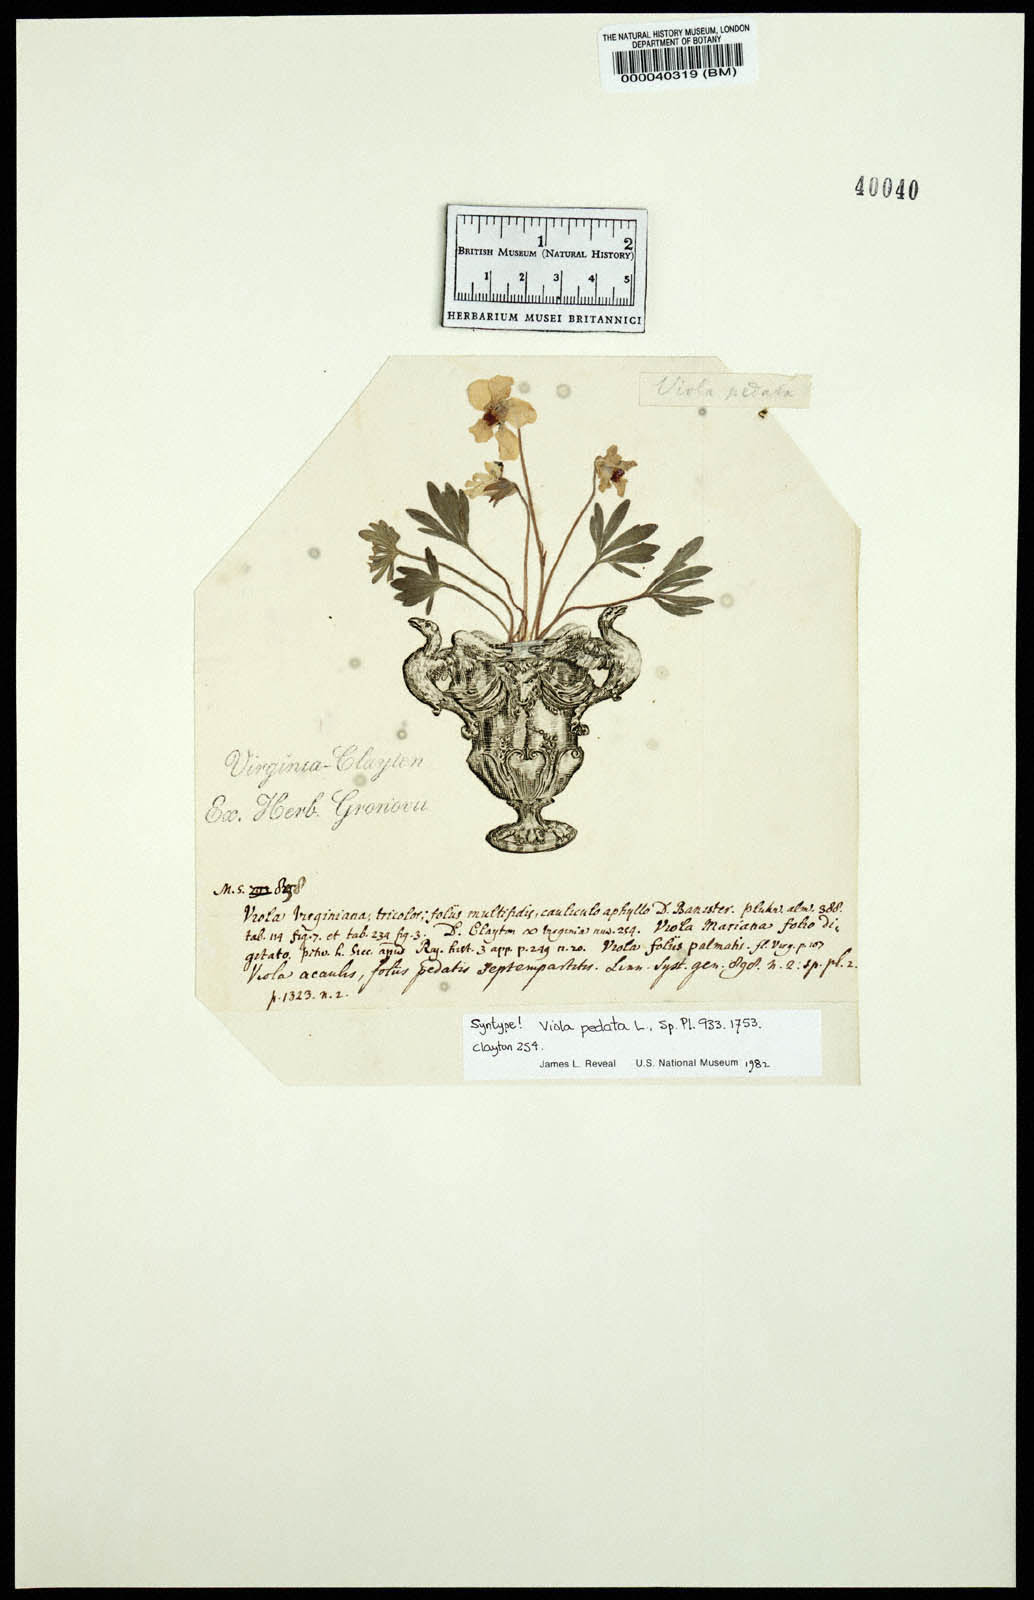 THE NATURAL HISTORY MUSEUM, LONDON
DEPARTMENT OF BOTANY
000040319 (BM)
40040
1 2
BRITISH MUSEUM (NATURAL HISTORY)
1 2 3 4 5
HERBARIUM MUSEI BRITANNICI
Viola pedata
Virginia-Clayton
Ex. Herb. Gronovii
M.S. 898
Viola Virginiana, tricolor, foliis multifidis, cauliculo aphyllo D. Banister. Plukn. alm. 388.
tab. 114 fig. 7. et tab. 234 fig. 3. D. Clayton Virginia num. 254. Viola Mariana folio di,
gitato. petiv. h. Sicc. apud Ray. hist. 3 app. p. 249 n. 20. Viola foliis palmatis. fl. Virg. p. 107
Viola acaulis, foliis pedatis septempartitis. Linn. Syst. gen. 898. n. 2: sp. pl. 2.
p. 1323. n. 2.
Syntype! Viola pedata L., Sp. Pl. 933. 1753.
Clayton 254.
James L. Reveal U.S. National Museum 1982